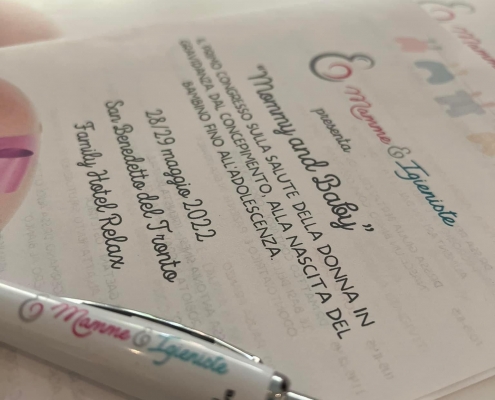 & Mamme & Igieniste
presenta
"Mommy and Baby"
IL PRIMO CONGRESSO SULLA SALUTE DELLA DONNA IN
GRAVIDANZA DAL CONCEPIMENTO, ALLA NASCITA DEL
BAMBINO FINO ALL'ADOLESCENZA.
28/29 maggio 2022
San Benedetto del Tronto
Family Hotel Relax
& Mamme & Igieniste